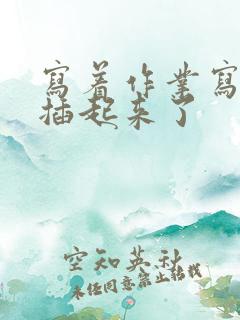 寫着作業寫
插起来了
空知英秋
未经同意禁止转载